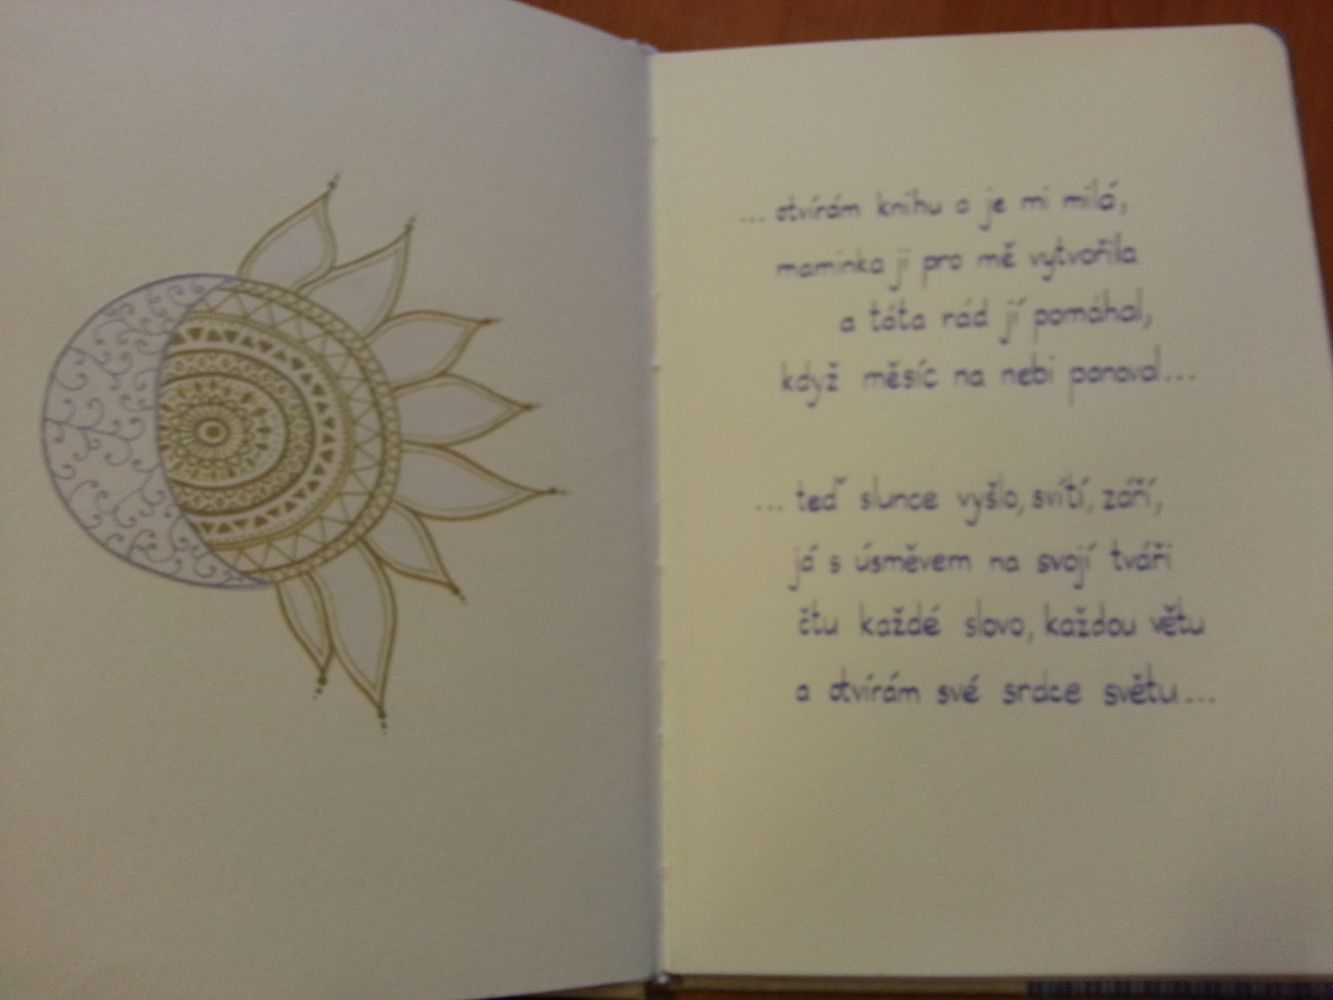 ... otvírám knihu a je mi milá,
maminka ji pro mě vytvořila
a táta rád jí pomáhal,
když měsíc na nebi panoval...
... teď slunce vyšlo, svítí, září,
já s úsměvem na svojí tváři
čtu každé slovo, každou větu
a otvírám své srdce světu...